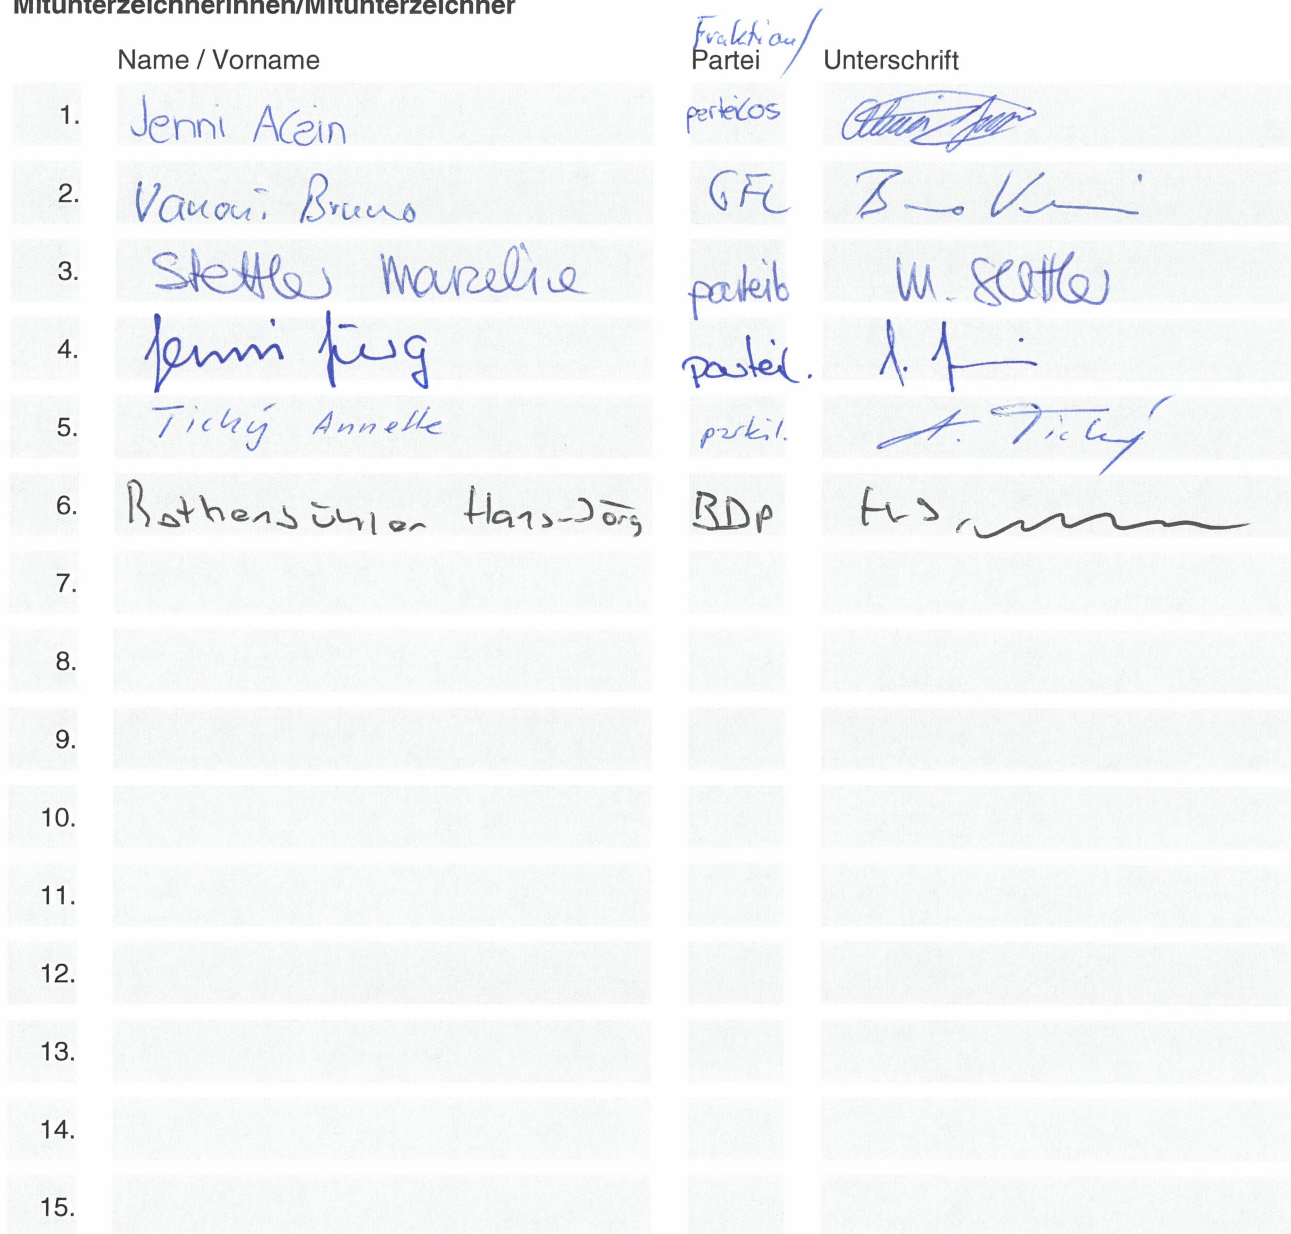 MitunterzeichnerInnen/Mitunterzeichner
Fraktion/
Name / Vorname Partei Unterschrift
1. Jenni Alain parteilos
2. Vanoni Bruno GFL B V
3. Stettler Marceline parteilo M. Stettler
4. Jenni Jürg parteil. J. J
5. Tichý Annette parteil. A. Tichý
6. Rothenbühler Hans-Jörg BDP
7.
8.
9.
10.
11.
12.
13.
14.
15.